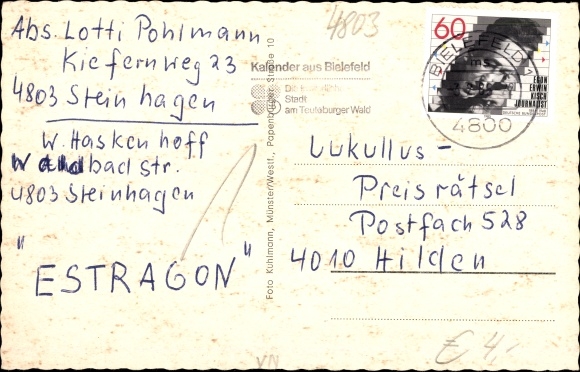 Abs. Lotti Pohlmann
Kiefernweg 23
4803 Steinhagen
W. Haskenhoff
Waldbadstr.
4803 Steinhagen
"ESTRAGON"
4803
Kalender aus Bielefeld
Die
Stadt
am Teutoburger Wald
BIELEFELD 1
4800
60
EGON
ERWIN
KISCH
JOURNALIST
DEUTSCHE BUNDESPOST
Foto Kuhlmann, Münster/Westf., Papenburger Straße 10
Lukullus -
Preisrätsel
Postfach 528
4010 Hilden
€ 4,-
VN